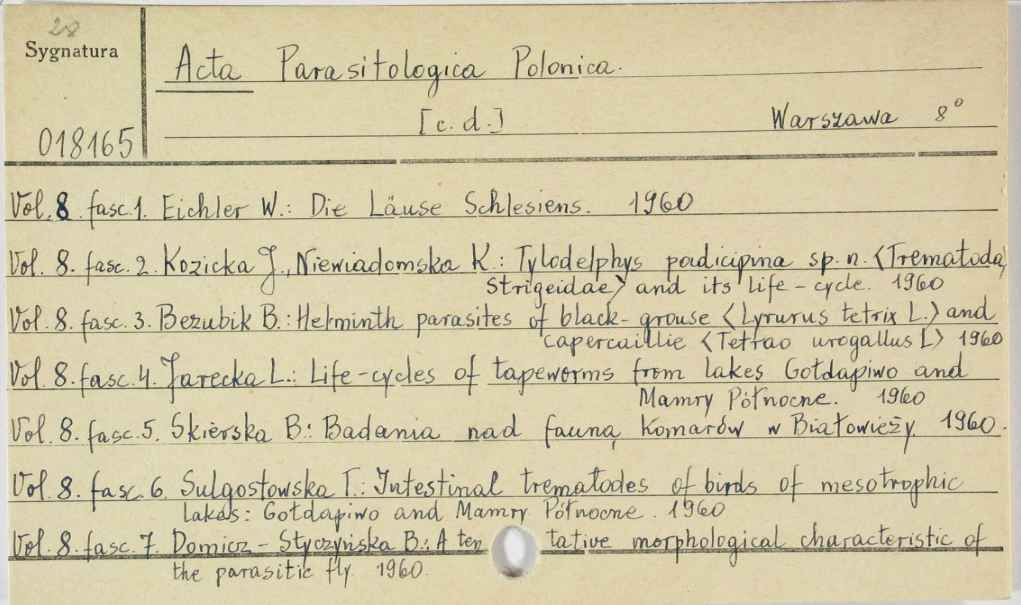 28
Sygnatura
Acta Parasitologica Polonica.
[c. d.]
Warszawa 8°
018165
Vol. 8. fasc. 1. Eichler W.: Die Läuse Schlesiens. 1960
Vol. 8. fasc. 2. Kozicka J., Niewiadomska K.: Tylodelphys podicipina sp. n. <Trematoda,
Strigeidae> and its life-cycle. 1960
Vol. 8. fasc. 3. Bezubik B.: Helminth parasites of black-grouse <Lyrurus tetrix L.> and
capercaillie <Tetrao urogallus L> 1960
Vol. 8. fasc. 4. Jarecka L.: Life-cycles of tapeworms from lakes Gołdapiwo and
Mamry Północne. 1960
Vol. 8. fasc. 5. Skierska B.: Badania nad fauną komarów w Białowieży. 1960.
Vol. 8. fasc. 6. Sulgostowska T.: Intestinal trematodes of birds of mesotrophic
lakes: Gołdapiwo and Mamry Północne. 1960
Vol. 8. fasc. 7. Domicz-Styczyńska B.: A ten tative morphological characteristic of
the parasitic fly. 1960.